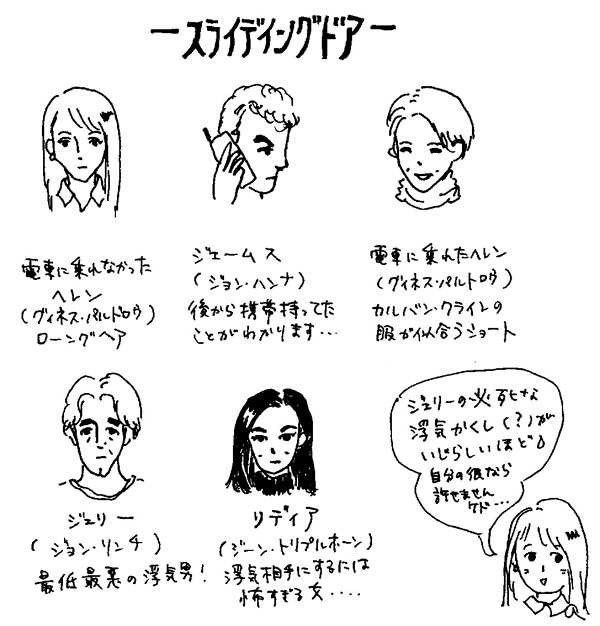 ースライディングドアー
電車に乗れなかった
ヘレン
(グィネス・パルトロウ)
ローングヘア
ジェームス
(ジョン・ハンナ)
後から携帯持ってた
ことがわかります・・・
電車に乗れたヘレン
(グィネス・パルトロウ)
カルバン・クラインの
服が似合うショート
ジェリー
(ジョン・リンチ)
最低最悪の浮気男!
リディア
(ジーン・トリプルホーン)
浮気相手にするには
怖すぎる女・・・・
ジェリーの必死な
浮気かくし(?)が
いじらしいほど
自分の彼なら
許せません
ケド・・・